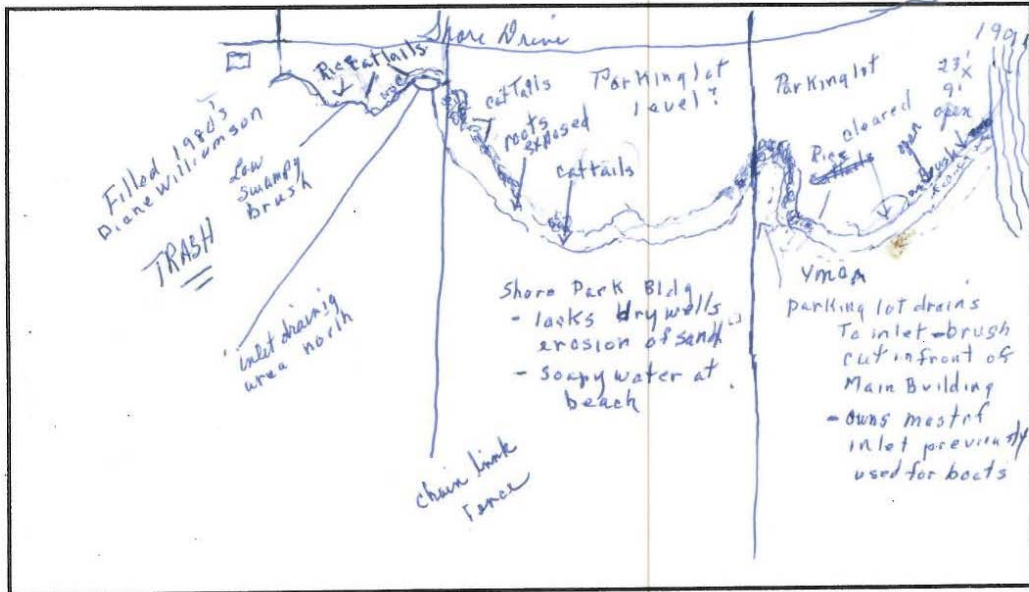 Shore Drive
Filled 1980's
Diane Williamson
TRASH
Rice
Cattails
Low
swampy
brush
inlet draining
area north
chain link
fence
cattails
roots
exposed
cattails
Parking lot
level?
Shore Park Bldg
- lacks drywells
erosion of sand
- soapy water at
beach
Parking lot
cleared
Rice
Cattails
open
brush
23'
x
9'
open
YMCA
parking lot drains
To inlet - brush
cut in front of
Main Building
- owns most of
inlet previously
used for boats